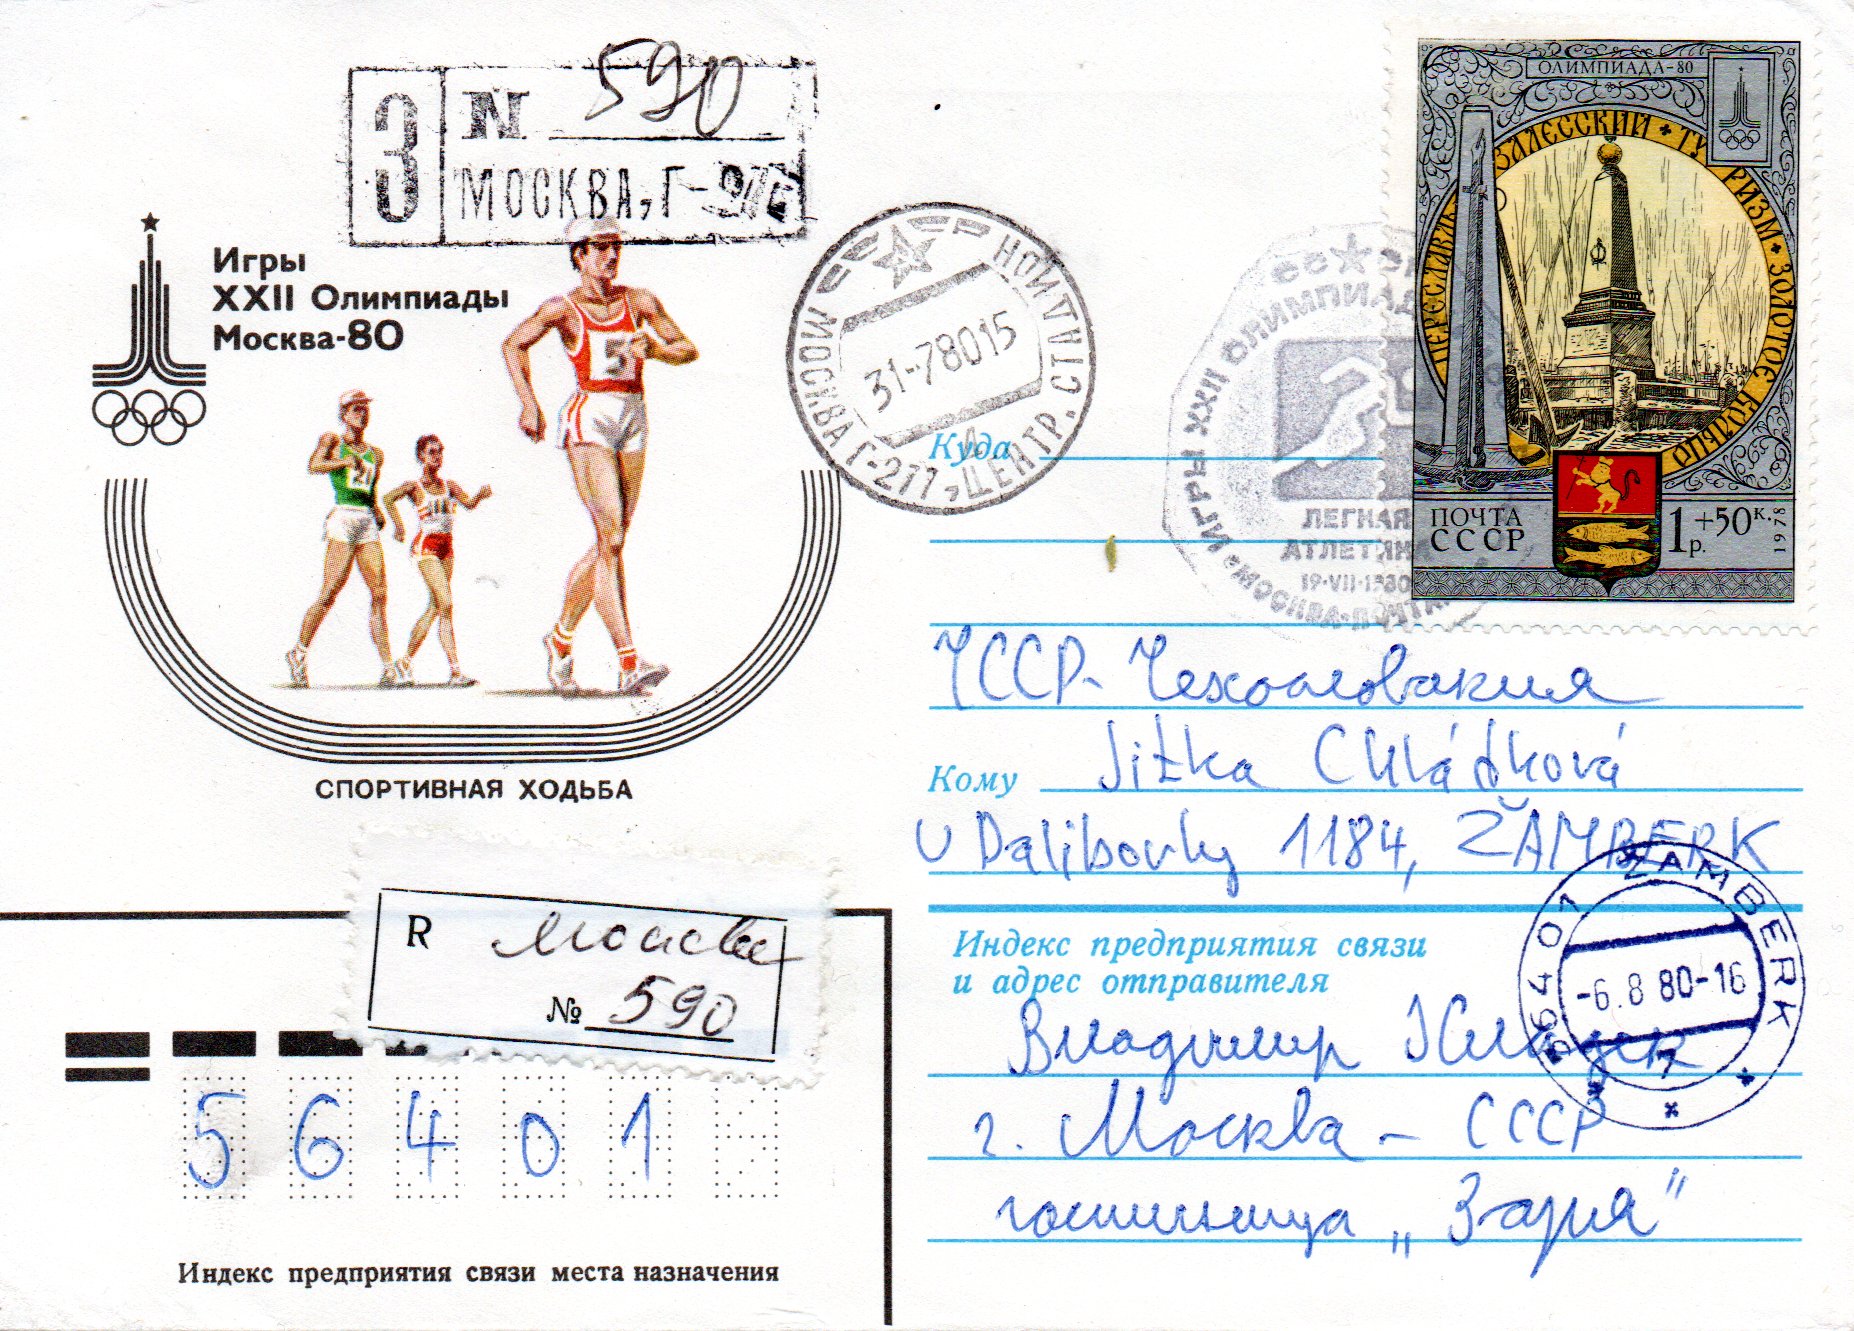 590
З N
МОСКВА, Г-
Игры
XXII Олимпиады
Москва-80
СПОРТИВНАЯ ХОДЬБА
МОСКВА Г-277 „ЦЕНТР. СТАДИОН
31-78015
СССР
ИГРЫ XXII ОЛИМПИАДЫ
ЛЕГКАЯ
АТЛЕТИКА
19·VII·1980
МОСКВА·ПОЧТАМТ
ОЛИМПИАДА-80
ПЕРЕСЛАВЛЬ ЗАЛЕССКИЙ • ТУРИЗМ • ЗОЛОТОЕ КОЛЬЦО
ПОЧТА
СССР
1р. +50к.
1978
Куда
ЧССР - Чехословакия
Кому Jitka Chládková
U Dalibovky 1184, ŽAMBERK
Индекс предприятия связи
и адрес отправителя
Владимир
г. Москва - СССР
гостиница „Заря"
564 01 ŽAMBERK
-6.8 80-16
7
R Москва
№ 590
56401
Индекс предприятия связи места назначения